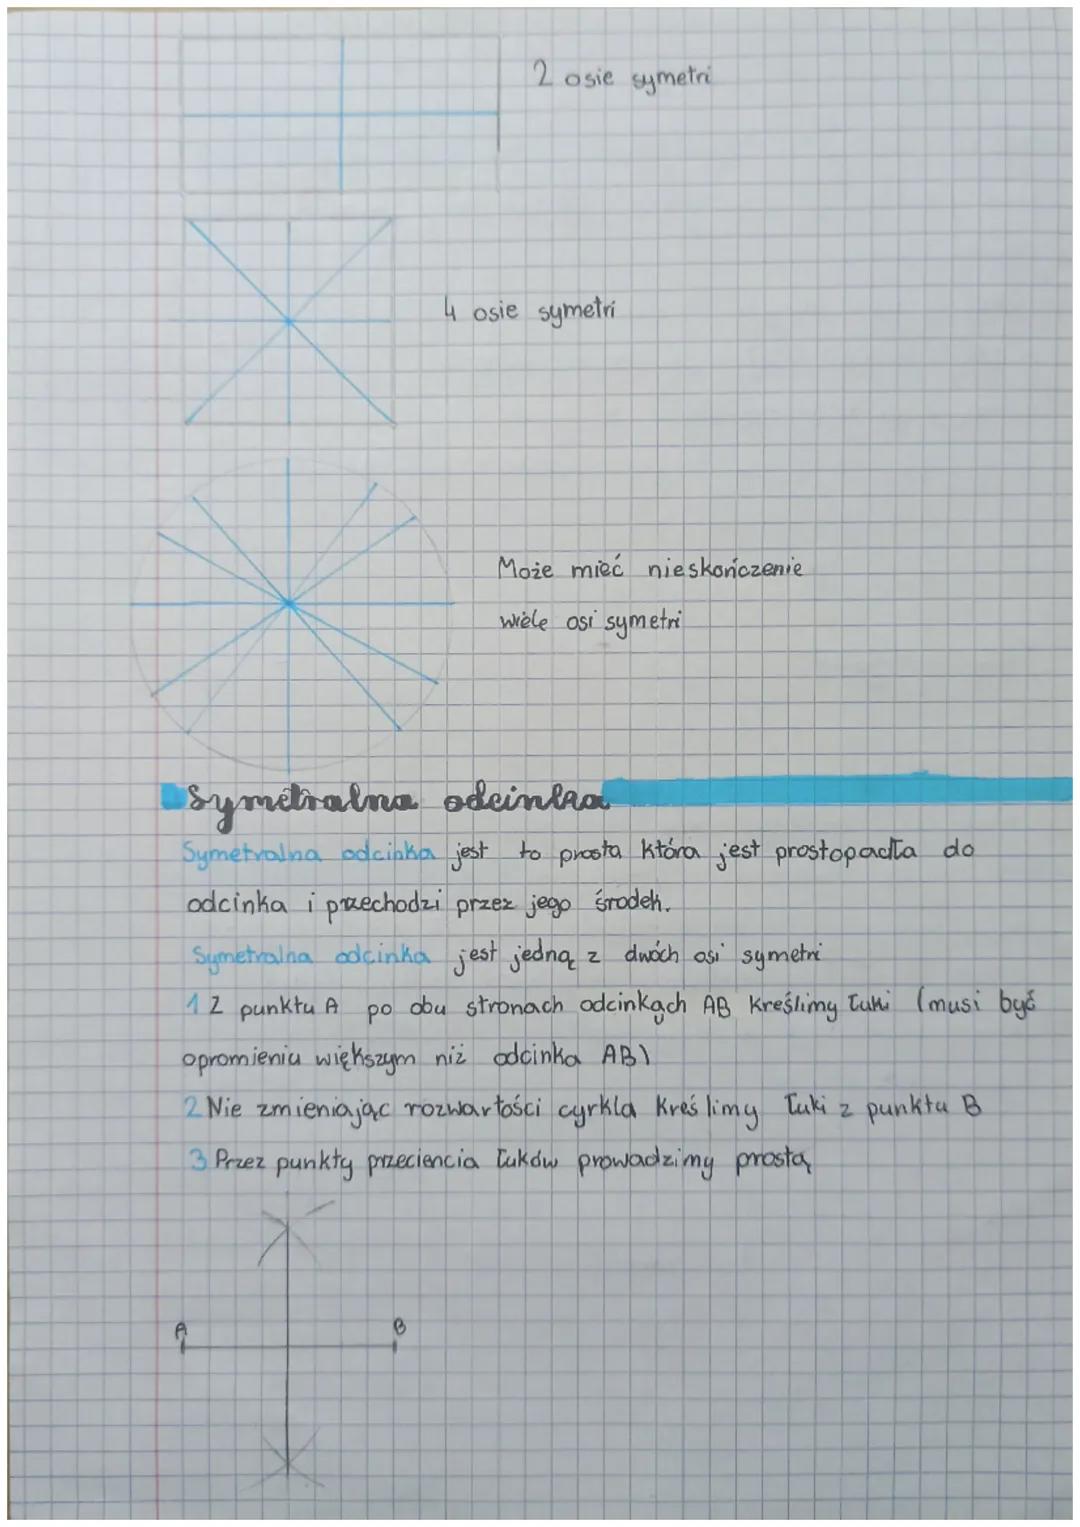 2 osie symetri
4 osie symetri
Może mieć nieskończenie
wiele osi symetri
Symetralna odcinka
Symetralna odcinka jest to prosta która jest prostopadła do
odcinka i przechodzi przez jego środek.
Symetralna odcinka jest jedną z dwóch osi symetri
1 Z punktu A po obu stronach odcinkach AB kreślimy łuki (musi być
opromieniu większym niż odcinka AB)
2 Nie zmieniając rozwartości cyrkla kreślimy łuki z punktu B
3 Przez punkty przeciencia łuków prowadzimy prostą
A B